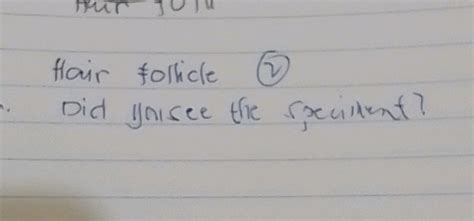 Hair follicle ②
Did you see the speciment?